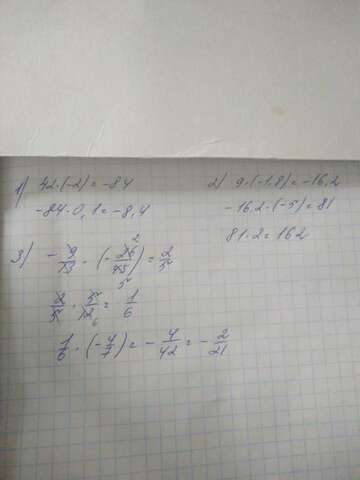 1) 42·(-2)=-84
-84·0,1=-8,4
2) 9·(-1,8)=-16,2
-16,2·(-5)=81
81·2=162
3) -9/13·(-26/45)=2/5
2/5·5/12=1/6
1/6·(-4/7)=-4/42=-2/21